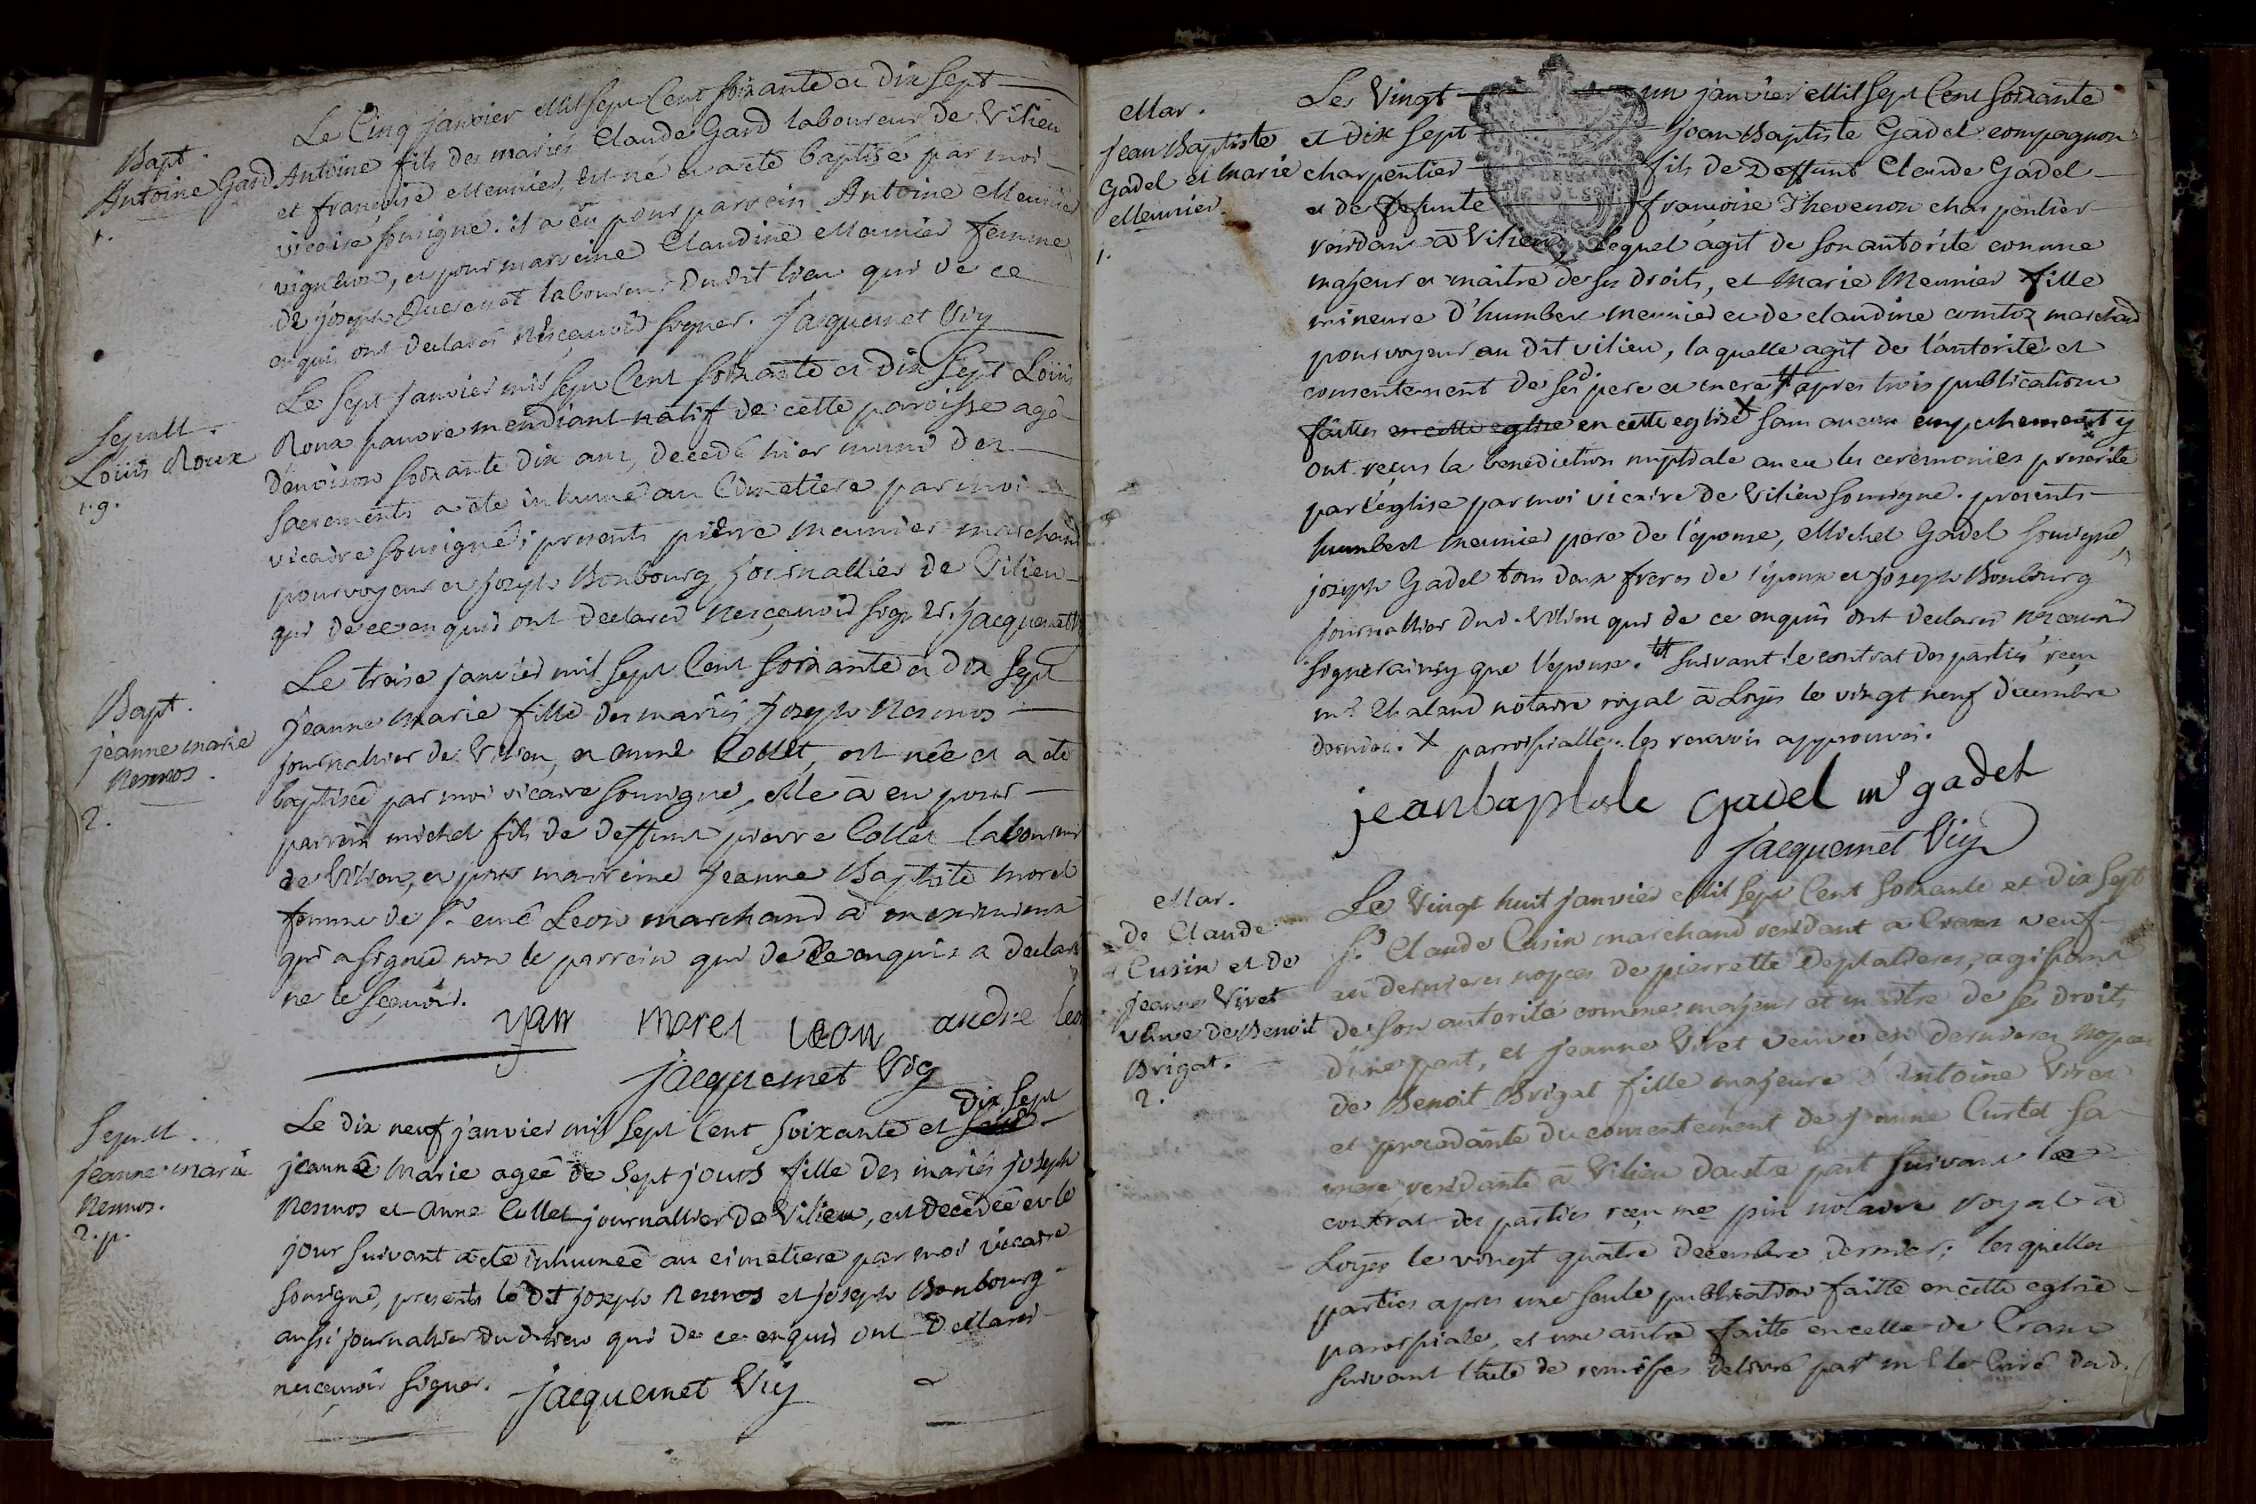 Bapt.
Antoine Gard
1.
Le Cinq janvier Mil Sept Cent soixante et dix Sept
Antoine fils des mariés Claude Gard laboureur de Vilieu
et françoise Meunier, est né et a été baptisé par moi
vicaire soussigné. il a eu pour parrein Antoine Meunier
vigneron, et pour marreine Claudine Meunier femme
de joseph laboureur dudit lieu qui de ce
enquis ont declarés ne sçcavoir signer. Jacquemet Vic
Sepult.
Louis Roux
1. g.
Le Sept janvier mil Sept Cent Soixante et dix Sept Louis
Roux pauvre mendiant natif de cette paroisse agé
d'environ soixante dix ans, decedé hier muni des
Sacrements a été inhumé au Cimetiere par moi
vicaire soussigné; presents pierre meunier marchand
pourvoyeur et joseph Bonbourg journallier de Vilieu
qui de ce enquis ont declarés ne sçcavoir signer. Jacquemet V
Bapt.
jeanne marie
Nesmos.
2.
Le treise janvier mil Sept Cent Soixante et dix Sept
Jeanne Marie fille des mariés Joseph Nesmos
journallier de Vilieu, et anne Collet, est née et a été
baptisée par moi vicaire soussigné, elle a eu pour
parrein michel fils de deffunt pierre Collet laboureur
de Vilieu, et pour marreine Jeanne Baptiste morel
femme de Sr. emé Leon marchand à meximieux
qui a signé non le parrein qui de ce enquis a declaré
ne le sçcavoir.
morel Leon andre leon
Jacquemet Vic
Sepult.
jeanne marie
Nesmos.
2. p.
dix Sept
Le dix neuf janvier mil Sept Cent Soixante et
jeanne Marie agée de Sept jours fille des mariés joseph
Nesmos et Anne Collet journallier de Vilieu, est decedée et le
jour suivant a été inhumée au cimetiere par moi vicaire
soussigné, presents le dit joseph Nesmos et joseph Bonbourg
aussi journallier dudit lieu qui de ce enquis ont declarés
ne sçcavoir signer. Jacquemet Vic
Mar.
jean Baptiste
Gadel et Marie
Meunier.
1.
Le Vingt un janvier Mil Sept Cent Soixante
et dix Sept jean Baptiste Gadel compagnon
charpentier fils de Deffunt Claude Gadel
et de defunte françoise Thevenon charpentier
residant à Vilieu, lequel agit de son autorité comme
majeur et maitre de ses droits, et Marie Meunier fille
mineure d'humbert meunier et de claudine comtoz marchand
pourvoyeur au dit vilieu, laquelle agit de l'autorité et
consentement de sesd. pere et mere # apres trois publications
faittes en cette eglise en cette eglise X sans aucun empechement y
ont reçus la benediction nuptiale avec les ceremonies prescrite
par l'église par moi vicaire de Vilieu soussigné. presents
humbert meunier pere de l'epouse, Michel Gadel soussigné,
joseph Gadel tous deux freres de l'époux et joseph Bonbourg
journallier dud. Vilieu qui de ce enquis ont declarés ne sçcavoir
signer ainsy que l'epouse. # suivant le contrat des parties reçu
me Chaland notaire royal à Loyes le vingt neuf decembre
dernier. X parroissialle. les renvois approuvés.
jean baptiste Gadel m gadel
Jacquemet Vic
Mar.
De Claude
Cusin et de
jeanne Vivet
veuve de Benoit
Brigat.
2.
Le Vingt huit janvier Mil Sept Cent Soixante et dix Sept
Sr. Claude Cusin marchand residant a Crans veuf
en dernieres nopces de pierrette Desplatieres, agissant
de son autorité comme majeur et maitre de ses droits
d'une part, et jeanne Vivet veuve en dernieres nopces
de Benoit Brigat fille majeure d'Antoine Vivet
et procedante du consentement de jeanne Curtet sa
mere residante à Vilieu d'autre part suivant le
contrat des parties reçu me pin notaire royal à
Loyes le vingt quatre decembre dernier; lesquelles
parties apres une seule publication faitte en cette eglise
parroissiale, et une autre faitte en celle de Crans
suivant l'acte de remisses delivré par mr le Curé dud.